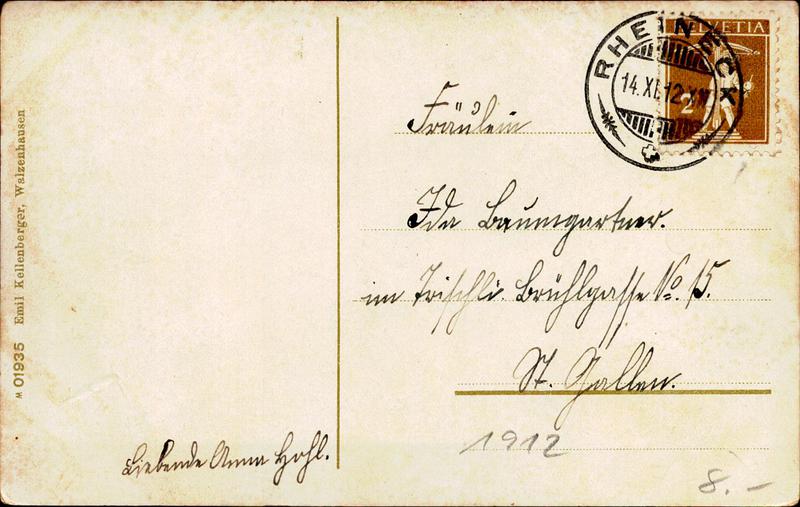 HELVETIA
2
RHEINECK
14.XI.12.XII
Fräulein
Ida Baumgartner.
im Trischli. Brühlgasse No. 15.
St. Gallen.
1912
8.-
Liebende Anna Hohl.
M 01935 Emil Kellenberger, Walzenhausen